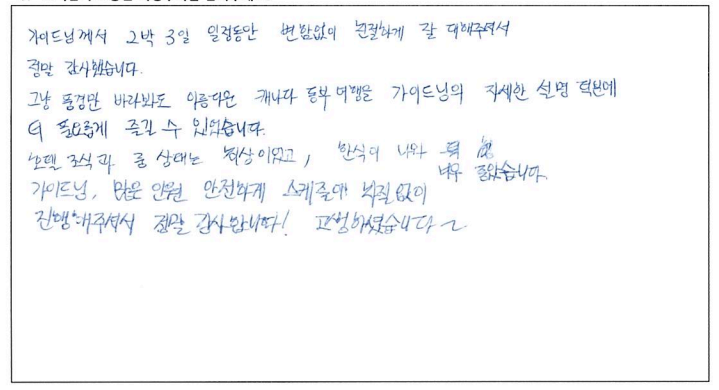 가이드님께서 2박 3일 일정동안 변함없이 친절하게 잘 대해주셔서
정말 감사했습니다.
그냥 풍경만 바라봐도 아름다운 캐나다 동부 여행을 가이드님의 자세한 설명 덕분에
더 풍요롭게 즐길 수 있었습니다.
호텔 조식과 룸 상태는 최상이었고, 한식이 나와
너무 좋았습니다.
가이드님, 많은 인원 안전하게 스케줄에 차질없이
진행해주셔서 정말 감사합니다! 고생하셨습니다~